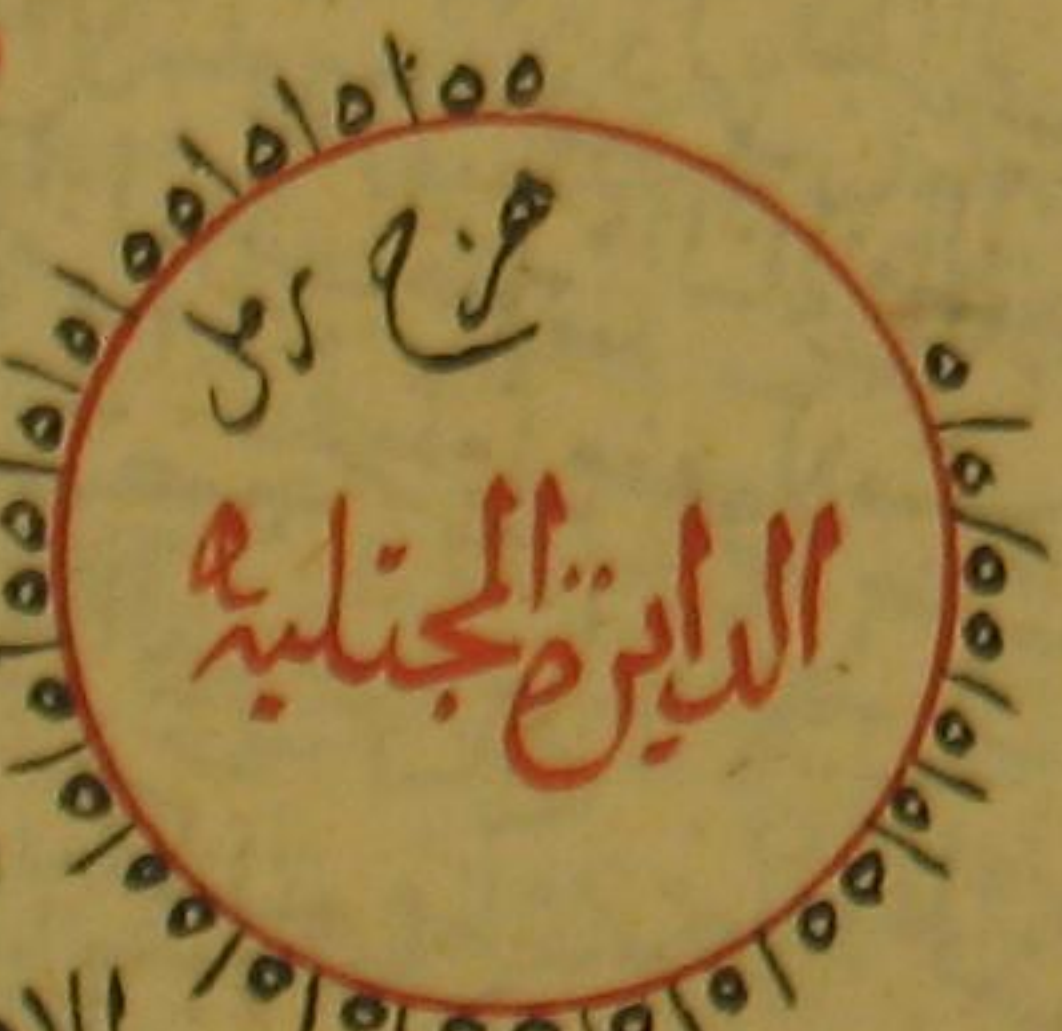 هزج
رمل
الدايرة المجتلبه